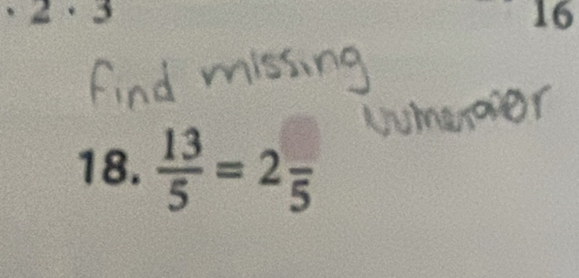 · 2 · 3
16
find missing
numerator
18. 13/5 = 2 /5